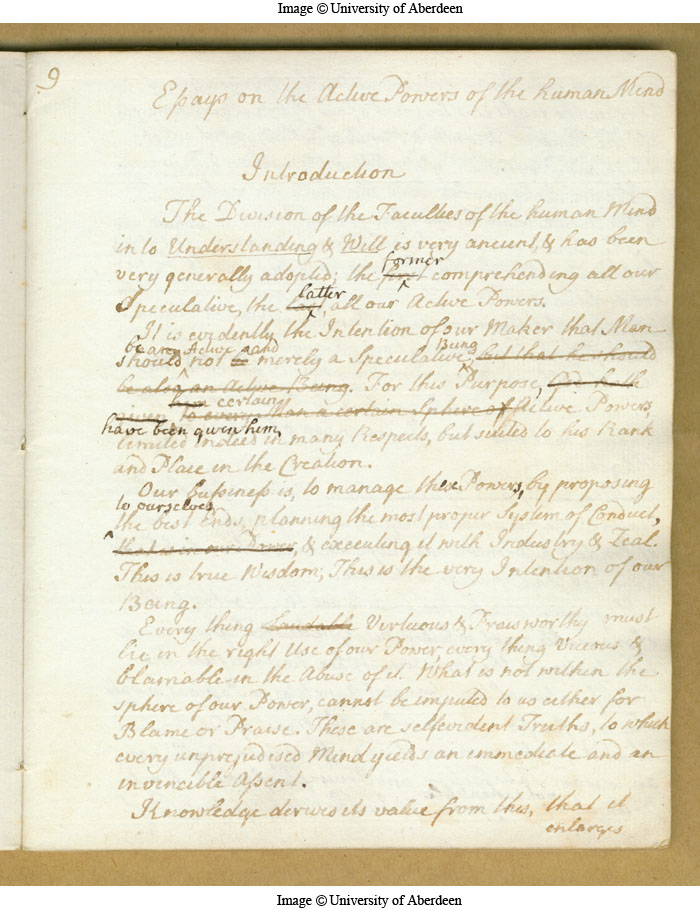 Image © University of Aberdeen
9
Essays on the Active Powers of the human Mind
Introduction
The Division of the Faculties of the human Mind
into Understanding & Will is very ancient, & has been
former
very generally adopted; the comprehending all our
latter
Speculative, the last, all our Active Powers.
It is evidently the Intention of our Maker that Man
be an Active and Being
should not be merely a Speculative, but that he should
be also an Active Being. For this Purpose, God hath
certain
given to every Man a certain Sphere of Active Powers
have been given him,
limited indeed in many Respects, but suited to his Rank
and Place in the Creation.
Our bussiness is, to manage these Powers, by proposing
to ourselves
the best Ends, planning the most proper System of Conduct,
that is in our Power, & executing it with Industry & Zeal.
This is true Wisdom; This is the very Intention of our
Being.
Every thing laudable Virtuous & Praisworthy must
lie in the right Use of our Power every thing Vicious &
blamable in the Abuse of it. What is not within the
sphere of our Power, cannot be imputed to us either for
Blame or Praise. These are selfevident Truths, to which
every unprejudised Mind yields an immediate and an
invincible Assent.
Knowledge derives its value from this, that it
enlarges
Image © University of Aberdeen